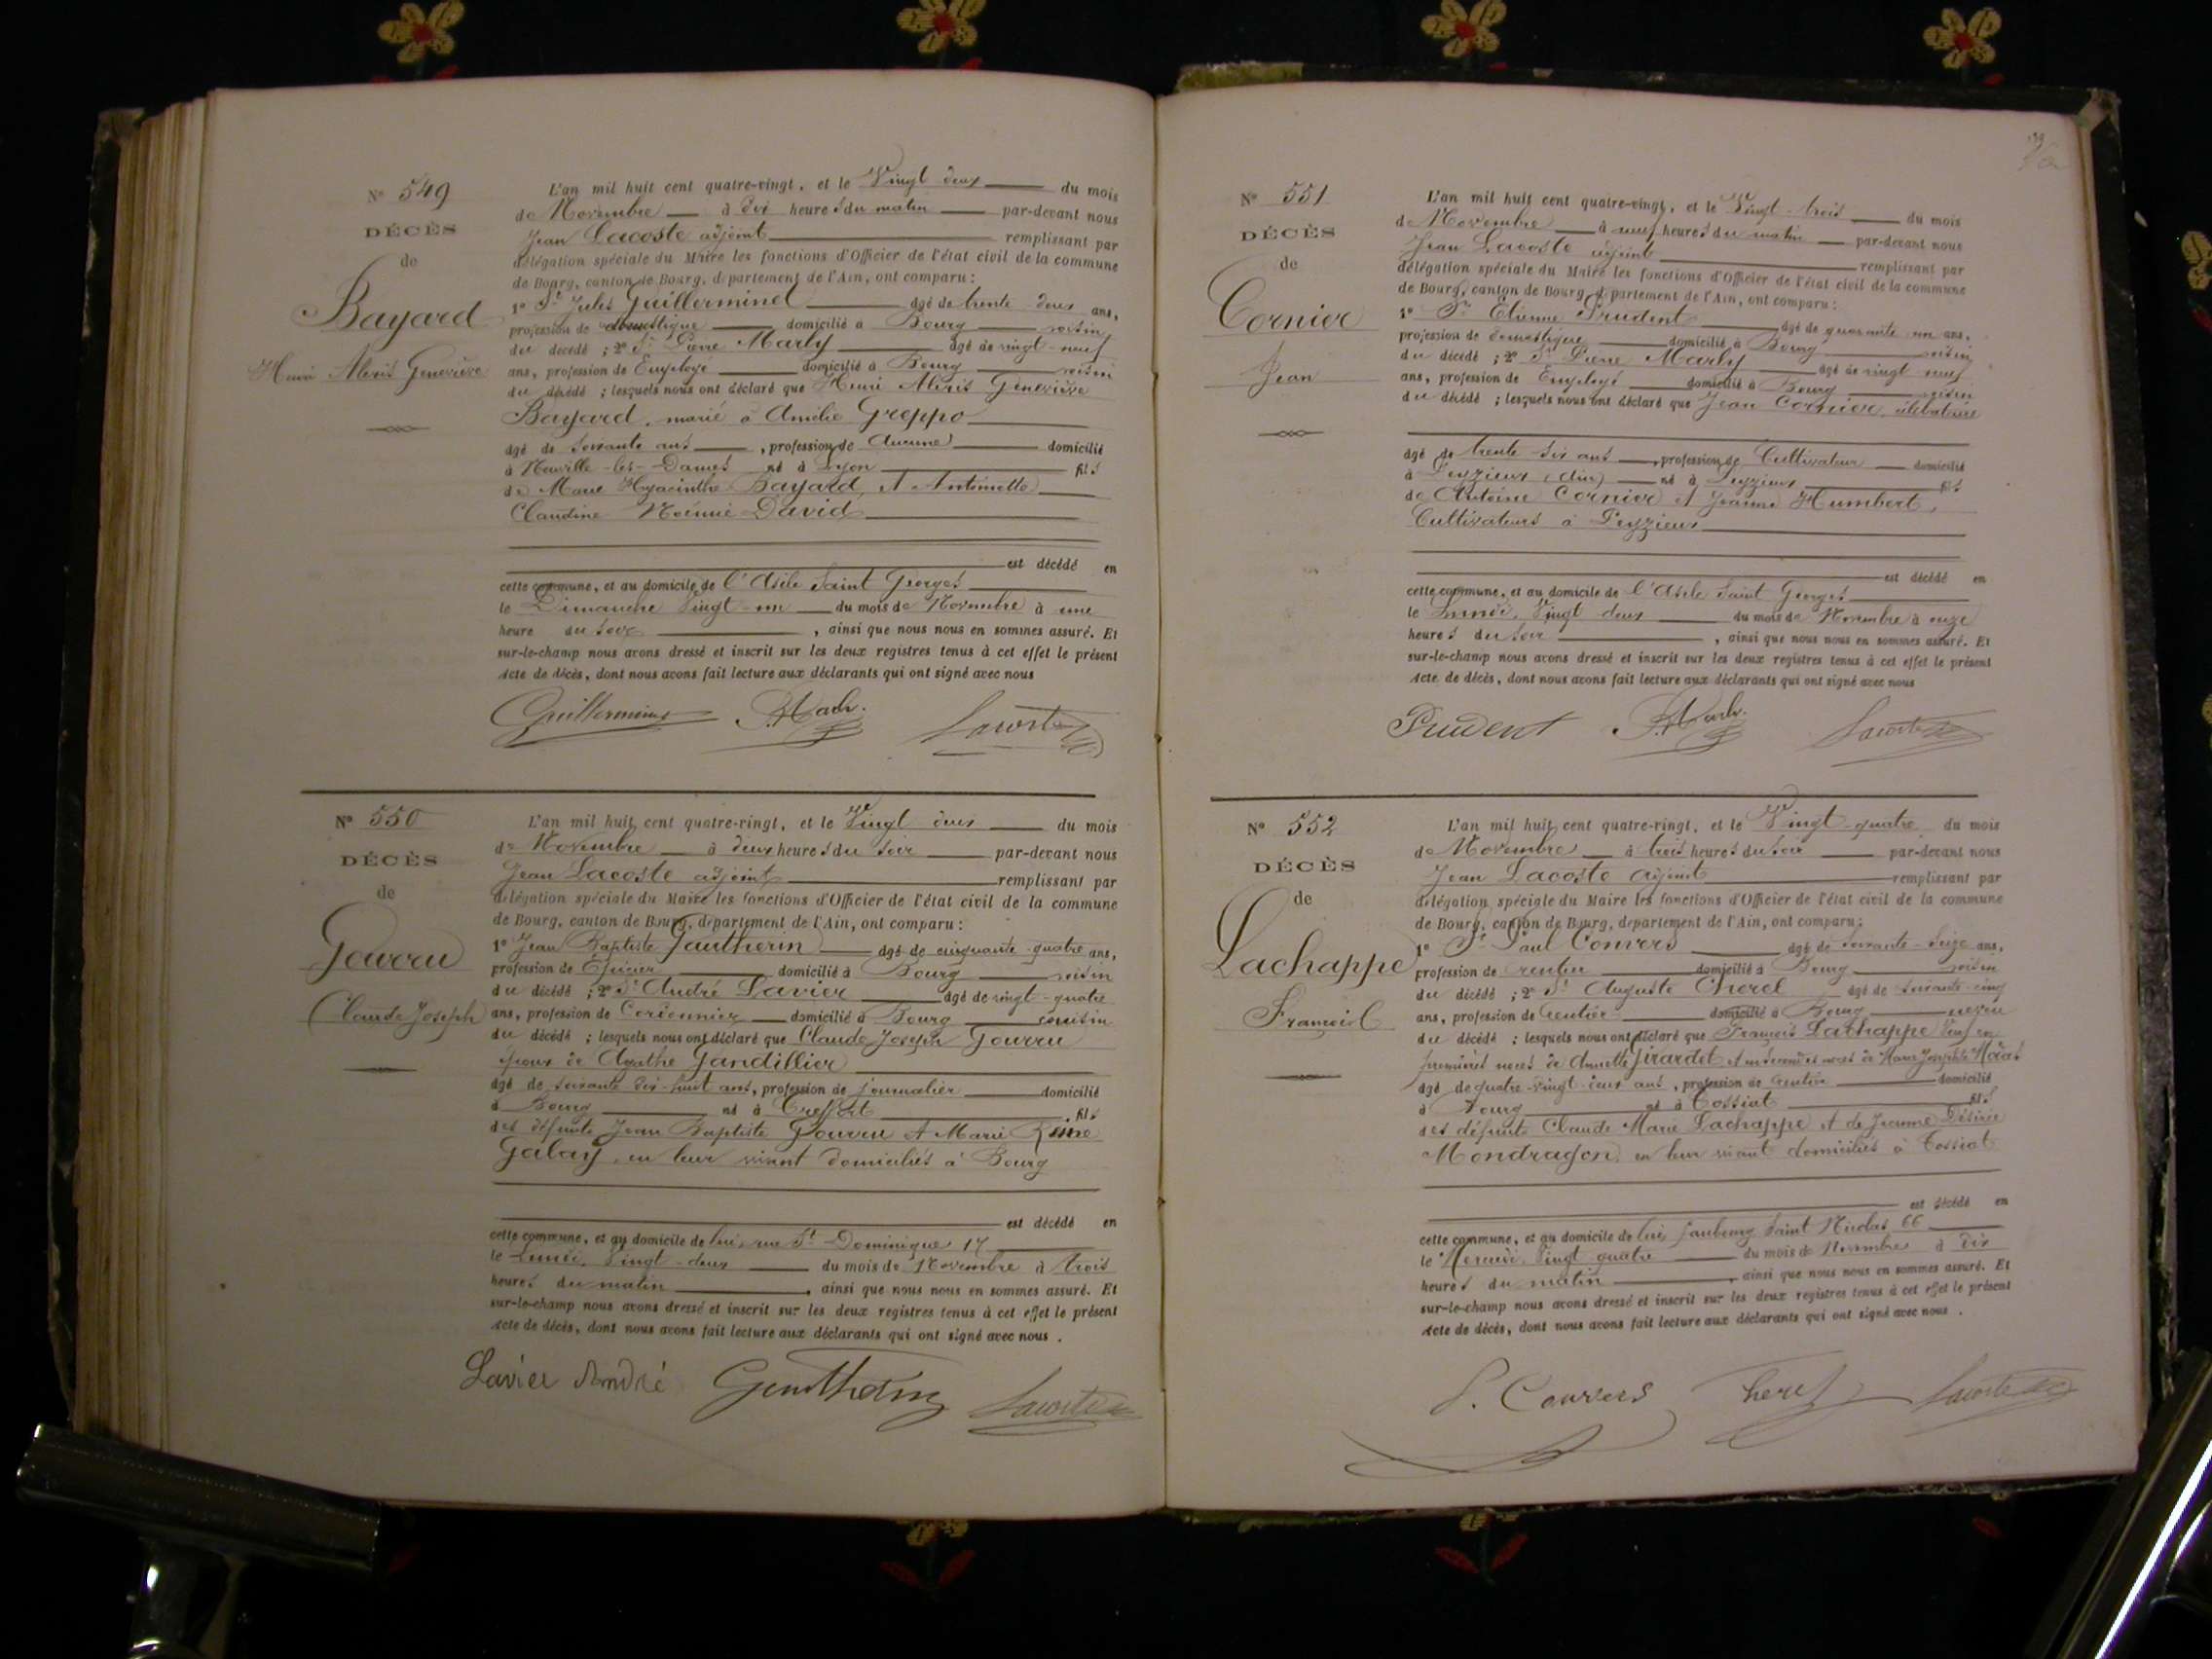 Nº 549
DÉCÈS
de
Bayard
Henri Alexis Geneviève
L'an mil huit cent quatre-vingt, et le Vingt deux du mois
de Novembre à dix heures du matin par-devant nous
Jean Lacoste adjoint remplissant par
délégation spéciale du Maire les fonctions d'Officier de l'état civil de la commune
de Bourg, canton de Bourg, département de l'Ain, ont comparu :
1º Sr Jules Guillerminet âgé de trente deux ans,
profession de domestique domicilié à Bourg voisin
du décédé ; 2º Sr Pierre Marly âgé de vingt-neuf
ans, profession de Employé domicilié à Bourg voisin
du décédé ; lesquels nous ont déclaré que Henri Alexis Geneviève
Bayard, marié à Amélie Greppo
âgé de soixante ans, profession de Aucune domicilié
à Neuville-les-Dames né à Lyon fils
de Marie Hyacinthe Bayard et Antoinette
Claudine Noémie David
est décédé en
cette commune, et au domicile de l'Asile Saint Georges
le Dimanche Vingt-un du mois de Novembre à une
heure du soir, ainsi que nous nous en sommes assuré. Et
sur-le-champ nous avons dressé et inscrit sur les deux registres tenus à cet effet le présent
Acte de décès, dont nous avons fait lecture aux déclarants qui ont signé avec nous
Guillerminet Lacoste
Nº 550
DÉCÈS
de
Gouvru
Claude Joseph
L'an mil huit cent quatre-vingt, et le Vingt deux du mois
de Novembre à deux heures du soir par-devant nous
Jean Lacoste adjoint remplissant par
délégation spéciale du Maire les fonctions d'Officier de l'état civil de la commune
de Bourg, canton de Bourg, département de l'Ain, ont comparu :
1º Jean Baptiste Gautherin âgé de cinquante-quatre ans,
profession de Épicier domicilié à Bourg voisin
du décédé ; 2º Sr André Lavier âgé de vingt-quatre
ans, profession de Cordonnier domicilié à Bourg cousin
du décédé ; lesquels nous ont déclaré que Claude Joseph Gouvru
époux de Agathe Gandillier
âgé de soixante dix-huit ans, profession de journalier domicilié
à Bourg né à Treffort, fils
des défunts Jean Baptiste Gouvru et Marie Reine
Galay, en leur vivant domiciliés à Bourg
est décédé en
cette commune, et au domicile de lui, rue St Dominique 17
le Lundi, Vingt-deux du mois de Novembre à trois
heures du matin, ainsi que nous nous en sommes assuré. Et
sur-le-champ nous avons dressé et inscrit sur les deux registres tenus à cet effet le présent
Acte de décès, dont nous avons fait lecture aux déclarants qui ont signé avec nous.
Lavier André Lacoste
Nº 551
DÉCÈS
de
Cornier
Jean
L'an mil huit cent quatre-vingt, et le Vingt-trois du mois
de Novembre à neuf heures du matin par-devant nous
Jean Lacoste adjoint remplissant par
délégation spéciale du Maire les fonctions d'Officier de l'état civil de la commune
de Bourg, canton de Bourg, département de l'Ain, ont comparu :
1º Sr Etienne Prudent âgé de quarante un ans,
profession de domestique domicilié à Bourg voisin
du décédé ; 2º Sr Pierre Marly âgé de vingt neuf
ans, profession de Employé domicilié à Bourg voisin
du décédé ; lesquels nous ont déclaré que Jean Cornier, célibataire
âgé de trente six ans, profession de Cultivateur domicilié
à Peyzieux (Ain) né à Peyzieux fils
de Antoine Cornier et Jeanne Humbert,
Cultivateurs à Peyzieux
est décédé en
cette commune, et au domicile de l'Asile Saint Georges
le Lundi, Vingt deux du mois de Novembre à onze
heures du soir, ainsi que nous nous en sommes assuré. Et
sur-le-champ nous avons dressé et inscrit sur les deux registres tenus à cet effet le présent
Acte de décès, dont nous avons fait lecture aux déclarants qui ont signé avec nous
Prudent Lacoste
Nº 552
DÉCÈS
de
Lachappe
François
L'an mil huit cent quatre-vingt, et le Vingt-quatre du mois
de Novembre à trois heures du soir par-devant nous
Jean Lacoste adjoint remplissant par
délégation spéciale du Maire les fonctions d'Officier de l'état civil de la commune
de Bourg, canton de Bourg, département de l'Ain, ont comparu :
1º Sr Paul Convers âgé de soixante-seize ans,
profession de rentier domicilié à Bourg voisin
du décédé ; 2º Sr Auguste Cherel âgé de soixante-cinq
ans, profession de Rentier domicilié à Bourg neveu
du décédé ; lesquels nous ont déclaré que François Lachappe Veuf en
premières noces de Annette Girardet et en secondes noces de Marie Josephte
âgé de quatre-vingt-deux ans, profession de rentier domicilié
à Bourg né à Tossiat fils
des défunts Claude Marie Lachappe et de Jeanne Désirée
Mondragon, en leur vivant domiciliés à Tossiat
est décédé en
cette commune, et au domicile de lui, faubourg Saint Nicolas 66
le Mercredi, Vingt quatre du mois de Novembre à dix
heures du matin, ainsi que nous nous en sommes assuré. Et
sur-le-champ nous avons dressé et inscrit sur les deux registres tenus à cet effet le présent
Acte de décès, dont nous avons fait lecture aux déclarants qui ont signé avec nous.
P. Convers Cherel Lacoste